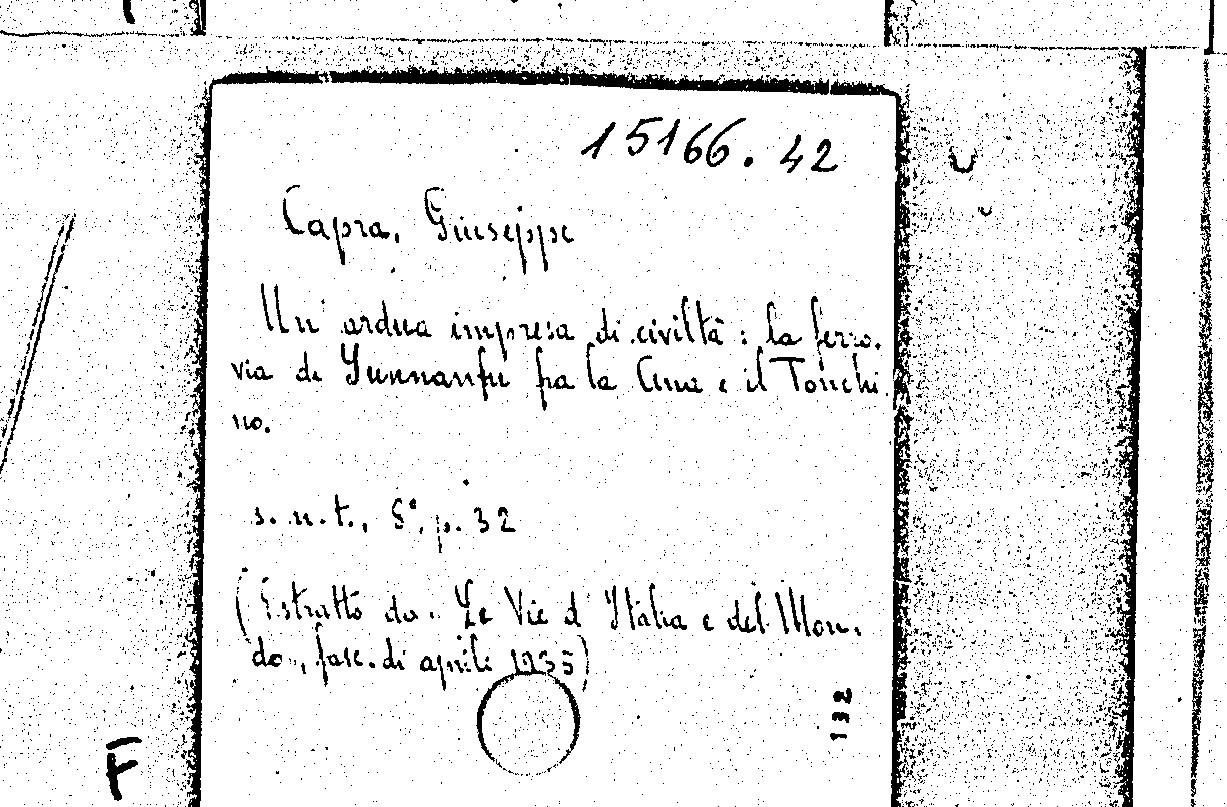 15166.42
Capra, Giuseppe
Un' ardua impresa di civiltà: la ferro-
via di Yunnanfu fra la Cina e il Tonchi
no.
s. n. t., 8°, p. 32
(Estratto da "Le Vie d'Italia e del Mon-
do", fasc. di aprile 1935)
132
F